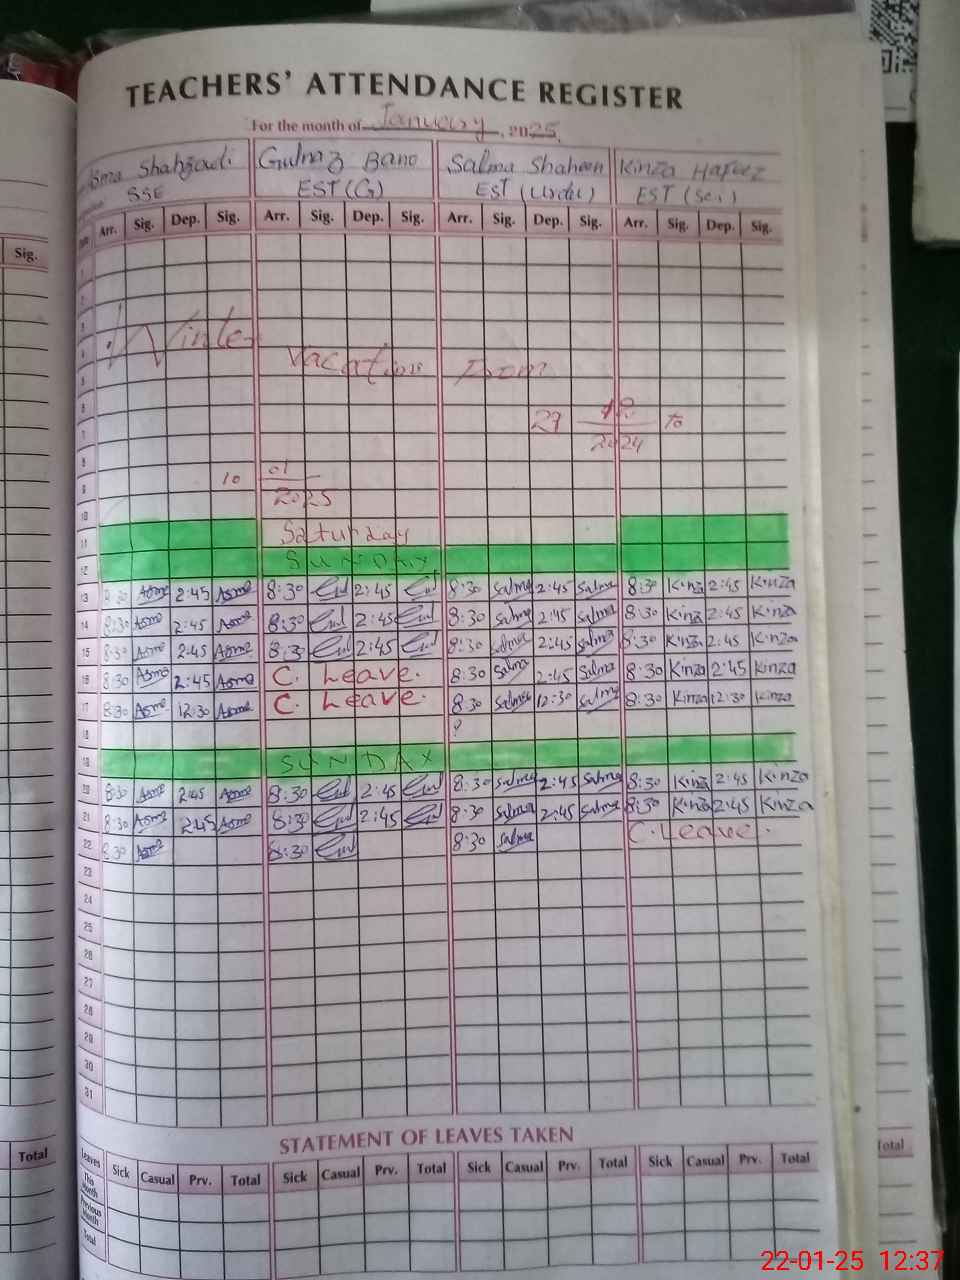 TEACHERS' ATTENDANCE REGISTER
For the month of January, 2025.
Asma Shahzadi Gulnaz Bano Salma Shaheen Kinza Hafeez
SSE EST (G) EST (Urdu) EST (Sci)
Sig. Date Arr. Sig. Dep. Sig. Arr. Sig. Dep. Sig. Arr. Sig. Dep. Sig. Arr. Sig. Dep. Sig.
1
2
3
Winter
4
Vacation From
5
6
27 12 to
7 2024
8
10 01
9 2025
10
11 Saturday
12 SUNDAY
13 8:30 Asma 2:45 Asma 8:30 2:45 8:30 Salma 2:45 Salma 8:30 Kinza 2:45 Kinza
14 8:30 Asma 2:45 Asma 8:30 2:45 8:30 Salma 2:45 Salma 8:30 Kinza 2:45 Kinza
15 8:30 Asma 2:45 Asma 8:3 2:45 8:30 Salma 2:45 Salma 8:30 Kinza 2:45 Kinza
16 8:30 Asma 2:45 Asma C. Leave. 8:30 Salma 2:45 Salma 8:30 Kinza 2:45 Kinza
17 8:30 Asma 12:30 Asma C. Leave. 8:30 Salma 12:30 Salma 8:30 Kinza 12:30 Kinza
18
19 SUNDAY
20 8:30 Asma 2:45 Asma 8:30 2:45 8:30 Salma 2:45 Salma 8:30 Kinza 2:45 Kinza
21 8:30 Asma 2:45 Asma 8:30 2:45 8:30 Salma 2:45 Salma 8:30 Kinza 2:45 Kinza
22 8:30 Asma 8:30 8:30 Salma C. Leave.
23
24
25
26
27
28
29
30
31
STATEMENT OF LEAVES TAKEN
Total Leaves Sick Casual Prv. Total Sick Casual Prv. Total Sick Casual Prv. Total Sick Casual Prv. Total Total
This Month
Previous Month
Total
22-01-25 12:37